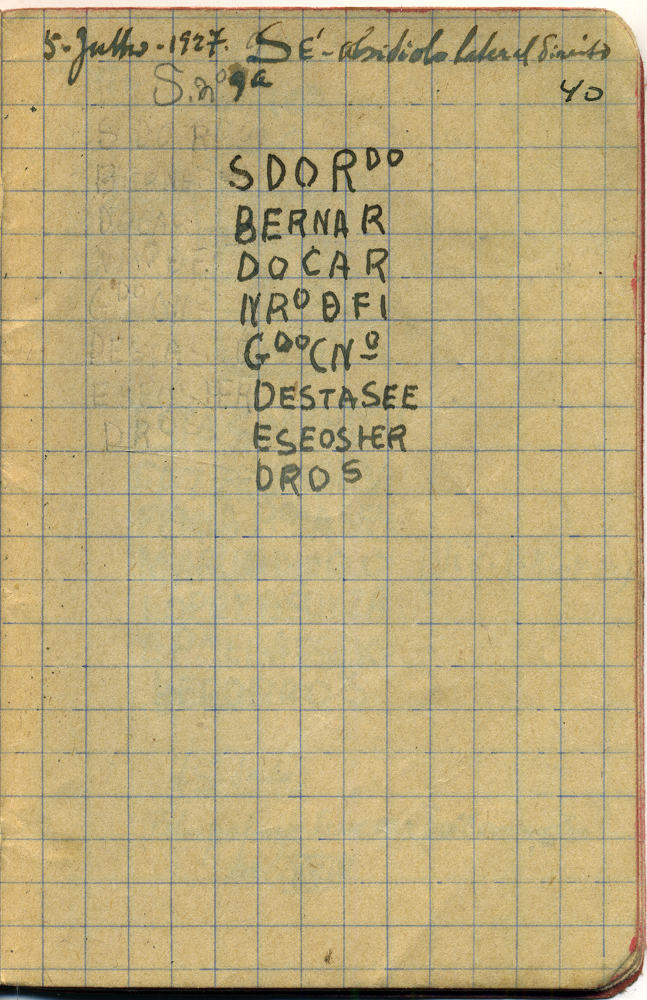 5-Julho-1927. Sé-absidiolo lateral direito
S. nº 9a
40
S DO R DO
BERNAR
DO CAR
NRO DFI
GDOCNº
DESTASEE
ESEOSHER
DROS